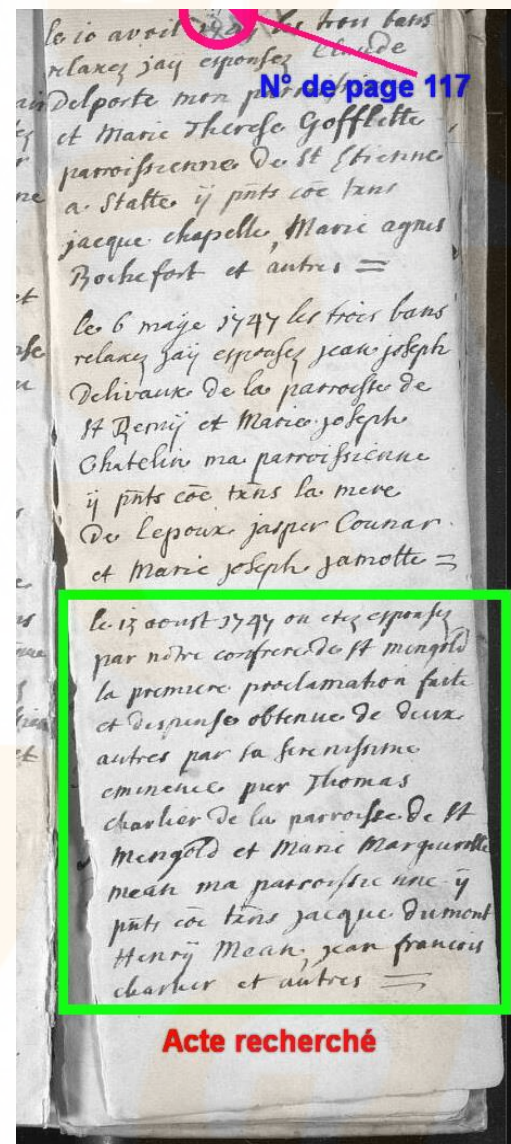 le 10 avril 1747 les trois bans
relaxez jaij espousez Claude
N° de page 117
Delporte mon
et Marie Therese Gofflette
parroissienne de St Etienne
a Statte ij pnts coe txns
jacque chapelle, Marie agnes
Rochefort et autres =
le 6 maije 1747 les trois bans
relaxez jaij espousez jean joseph
Delivaux de la parroisse de
St Remij et Marie joseph
Chatelin ma parroissienne
ij pnts coe txns la mere
De Lepoux jasper Counar
et Marie joseph jamotte =
le 13 aoust 1747 on etez espousez
par nôtre confrere de st mengold
la premiere proclamation faite
et dispense obtenue de deux
autres par sa serenissime
eminence pier Thomas
charlier de la parroisse de St
Mengold et Marie Margueritte
mean ma parroissienne ij
pnts coe txns jacque dumont
Henrij Mean, jean francois
charlier et autres =
Acte recherché